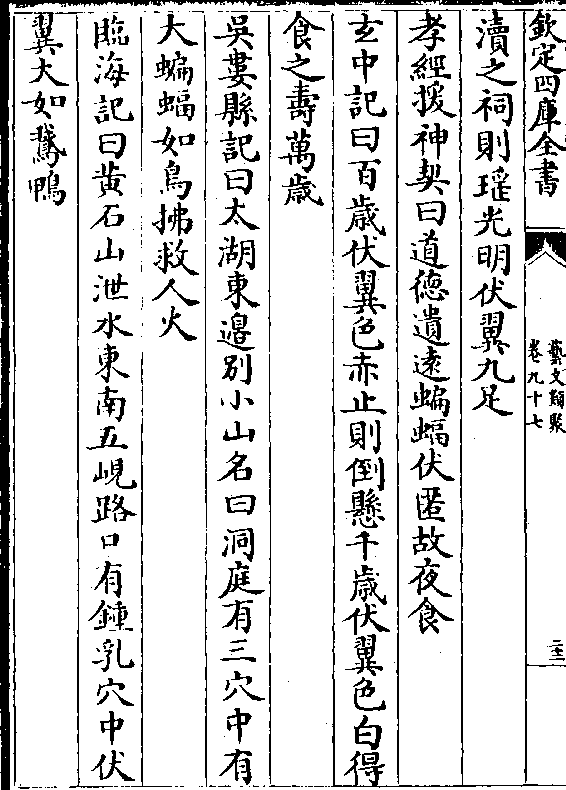 欽定四庫全書
藝文類聚
卷九十七
瀆之祠則瑶光明伏翼九足
孝經援神契曰道徳遺遠蝙蝠伏匿故夜食
玄中記曰百歳伏翼色赤止則倒懸千歳伏翼色白得
食之壽萬歳
吳婁縣記曰太湖東邉别小山名曰洞庭有三穴中有
大蝙蝠如鳥拂救人火
臨海記曰黄石山泄水東南五峴路口有鍾乳穴中伏
翼大如鵞鴨